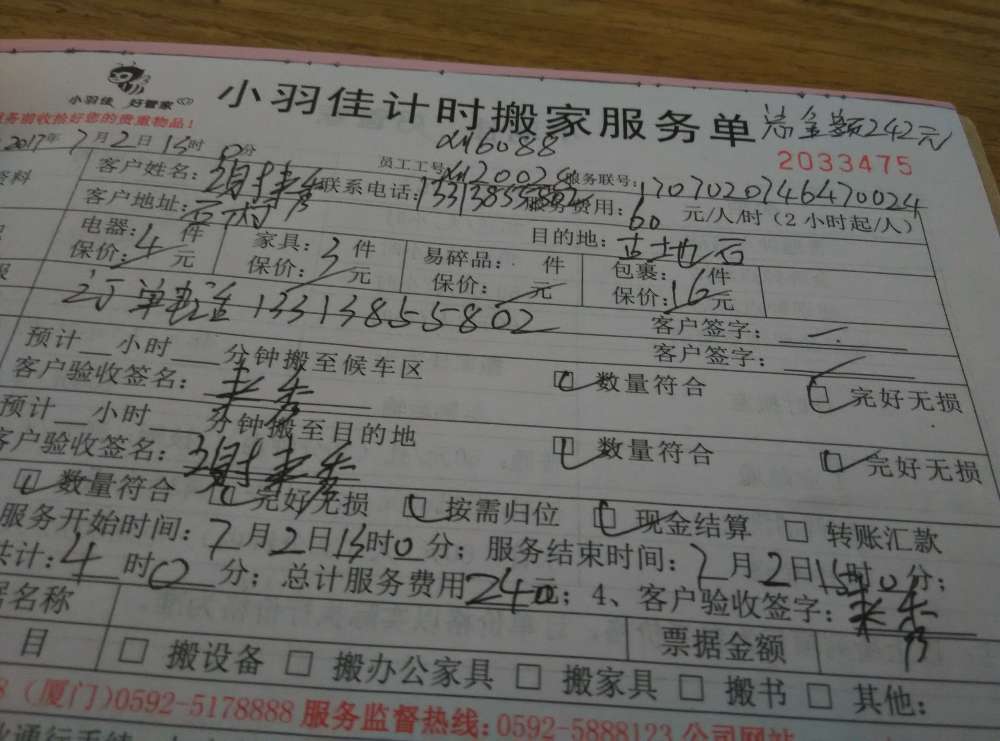 小羽佳 好管家
小羽佳计时搬家服务单 总金额242元
服务前收拾好您的贵重物品!
2033475
2017年7月2日15时0分
员工工号
服务联号:1707020746470024
资料
客户姓名:
联系电话:13313855802
服务费用:60元/人/时(2小时起/人)
客户地址:
目的地:
电器:4件
保价: 元
家具:3件
保价: 元
易碎品: 件
保价: 元
包裹: 件
保价: 元
订单电话13313855802
客户签字:
客户签字:
预计__小时__分钟搬至候车区
客户验收签名:
□ 数量符合 □ 完好无损
预计__小时__分钟搬至目的地
客户验收签名:
□ 数量符合 □ 完好无损
□ 数量符合 □ 完好无损 □ 按需归位 □ 现金结算 □ 转账汇款
服务开始时间:7月2日15时0分;服务结束时间:7月2日 时0分;
共计:4时0分;总计服务费用240元;4、客户验收签字:
名称 票据金额
目 □ 搬设备 □ 搬办公家具 □ 搬家具 □ 搬书 □ 其他:
(厦门)0592-5178888 服务监督热线:0592-5888123 公司网站